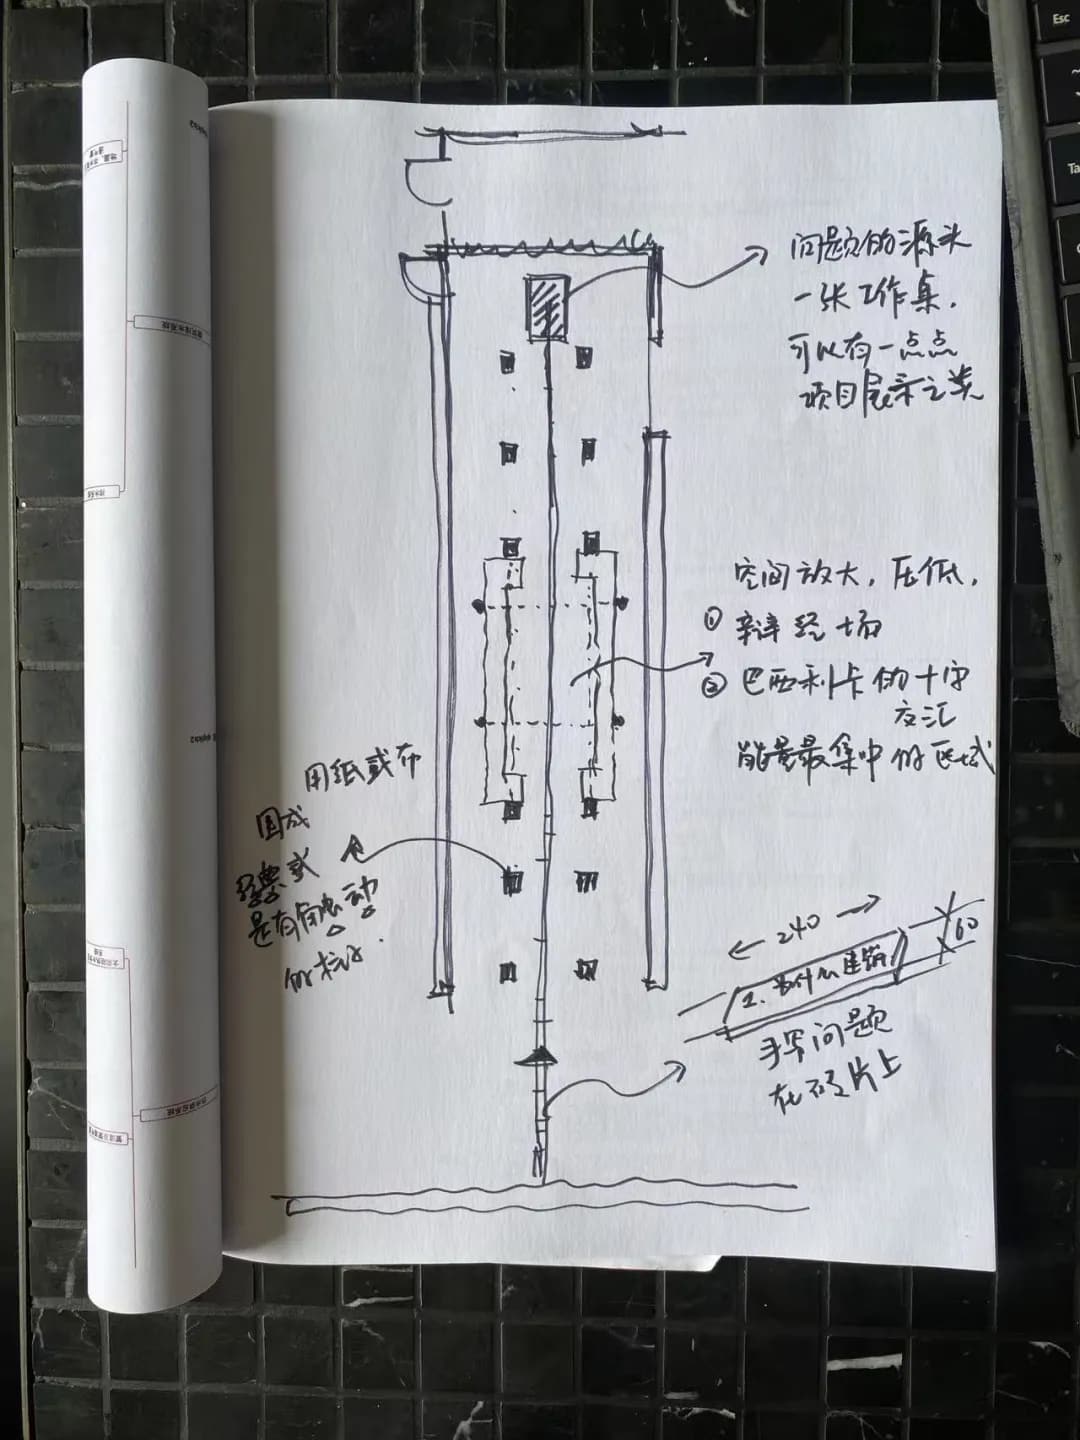 问题的源头
一张工作桌，
可以有一点点
项目展示之类
空间放大，压低，
① 辩经场
② 巴西利卡的十字
交汇
能量最集中的区域
用纸或布
围成
经典或
是有触动
的柱子．
← 240 →
60
1. 为什么建筑
手写问题
在砖片上
Esc